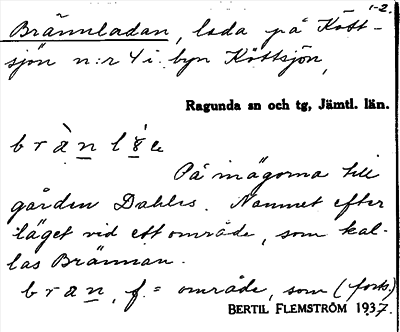 1-2.
Brännladan, lada på Kött-
sjön n:r 4 i byn Köttsjön,
Ragunda sn och tg, Jämtl. län.
På inägorna till
gården Dahlis. Namnet efter
läget vid ett område, som kal-
las Brännan.
bran, f. = område, som (forts.)
BERTIL FLEMSTRÖM 1937.